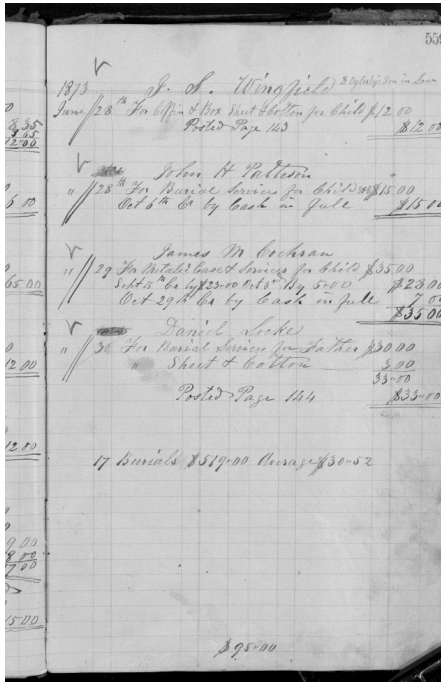 559
1873 J. S. Wingfield Son in Law
June 28th For Coffin & Box Sheet & Cotton for Child $12 00
Posted Page 143 $12.00
John H Patteson
" 28th For Burial Services for Child $15 00
Oct 6th Cr by Cash in full $15 00
James M Cochran
" 29 For Metalic Case & Services for Child $35 00
Sept 15th Cr by $23=00 Oct 8th By 5=00 $28 00
Oct 29th Cr by Cash in full 7 00
$35 00
Daniel Locke
" 30 For Burial Services for Father $30 00
" Sheet & Cotton 3 00
33=00
Posted Page 144 $33=00
17 Burials $519=00 Average $30=52
$95=00
8 35
3 65
12=00
6 00
65 00
12 00
12 00
9 00
8 00
7 00
15 00